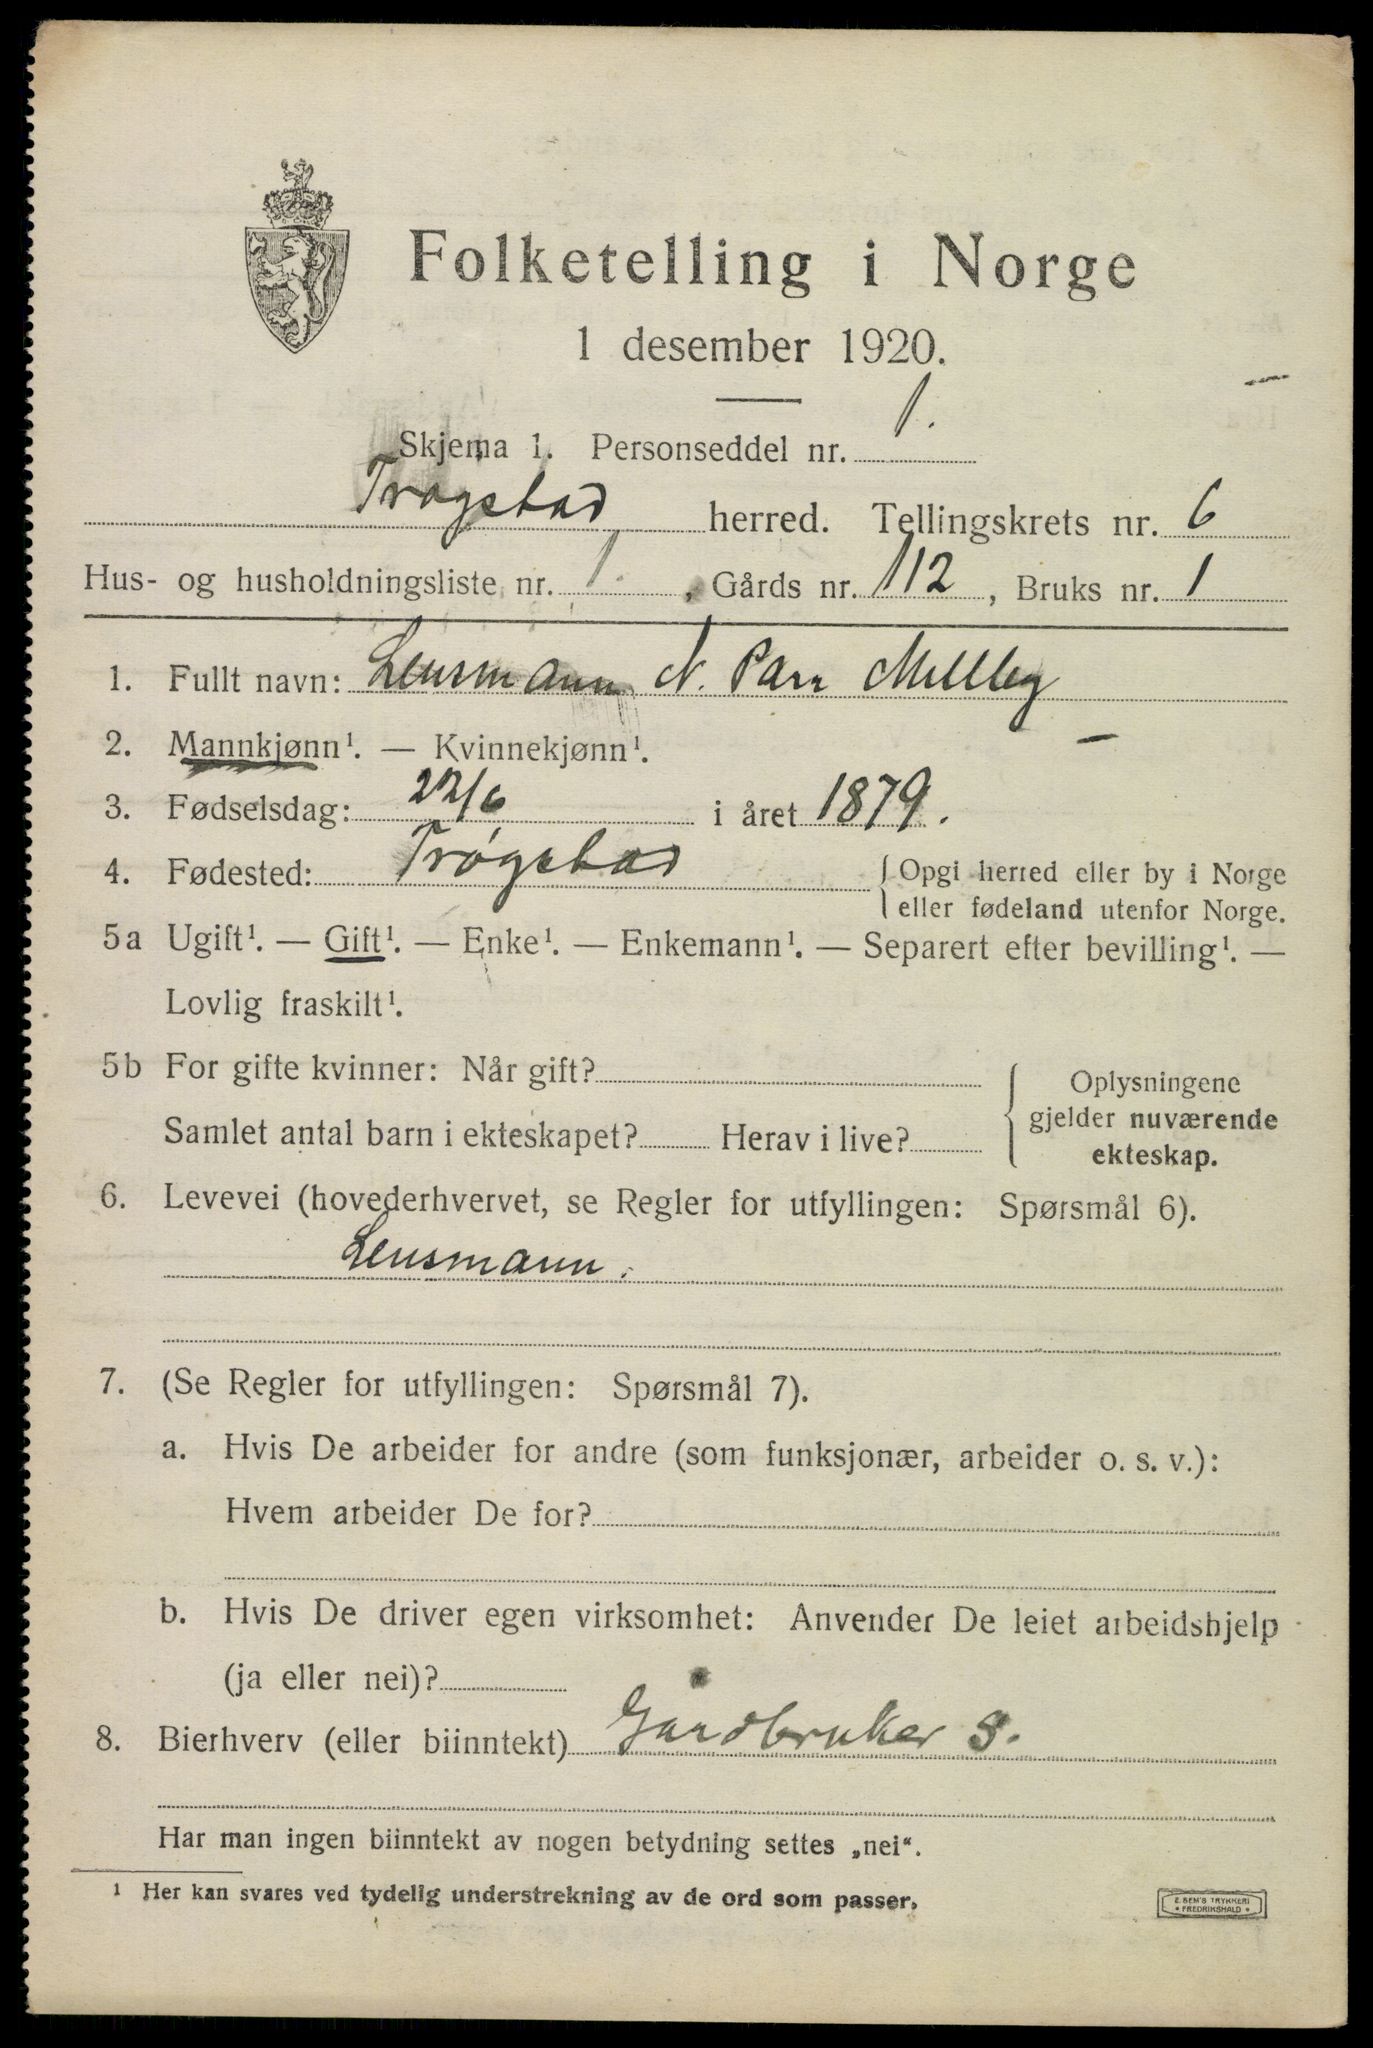 Folketelling i Norge
1 desember 1920.
Skjema 1. Personseddel nr. 1.
Trøgstad herred. Tellingskrets nr. 6
Hus- og husholdningsliste nr. 1. , Gårds nr. 112 , Bruks nr. 1
1. Fullt navn: Lensmann N. Parr Melleby
2. Mannkjønn¹. — Kvinnekjønn¹.
3. Fødselsdag: 22/6 i året 1879.
4. Fødested: Trøgstad { Opgi herred eller by i Norge
eller fødeland utenfor Norge.
5a Ugift¹. — Gift¹. — Enke¹. — Enkemann¹. — Separert efter bevilling¹. —
Lovlig fraskilt¹.
5b For gifte kvinner: Når gift?
Samlet antal barn i ekteskapet? Herav i live?
{ Oplysningene
gjelder nuværende
ekteskap.
6. Levevei (hovederhvervet, se Regler for utfyllingen: Spørsmål 6).
Lensmann.
7. (Se Regler for utfyllingen: Spørsmål 7).
a. Hvis De arbeider for andre (som funksjonær, arbeider o. s. v.):
Hvem arbeider De for?
b. Hvis De driver egen virksomhet: Anvender De leiet arbeidshjelp
(ja eller nei)?
8. Bierhverv (eller biinntekt) Gårdbruker S.
Har man ingen biinntekt av nogen betydning settes „nei“.
¹ Her kan svares ved tydelig understrekning av de ord som passer.
E. SEM'S TRYKKERI
• FREDRIKSHALD •